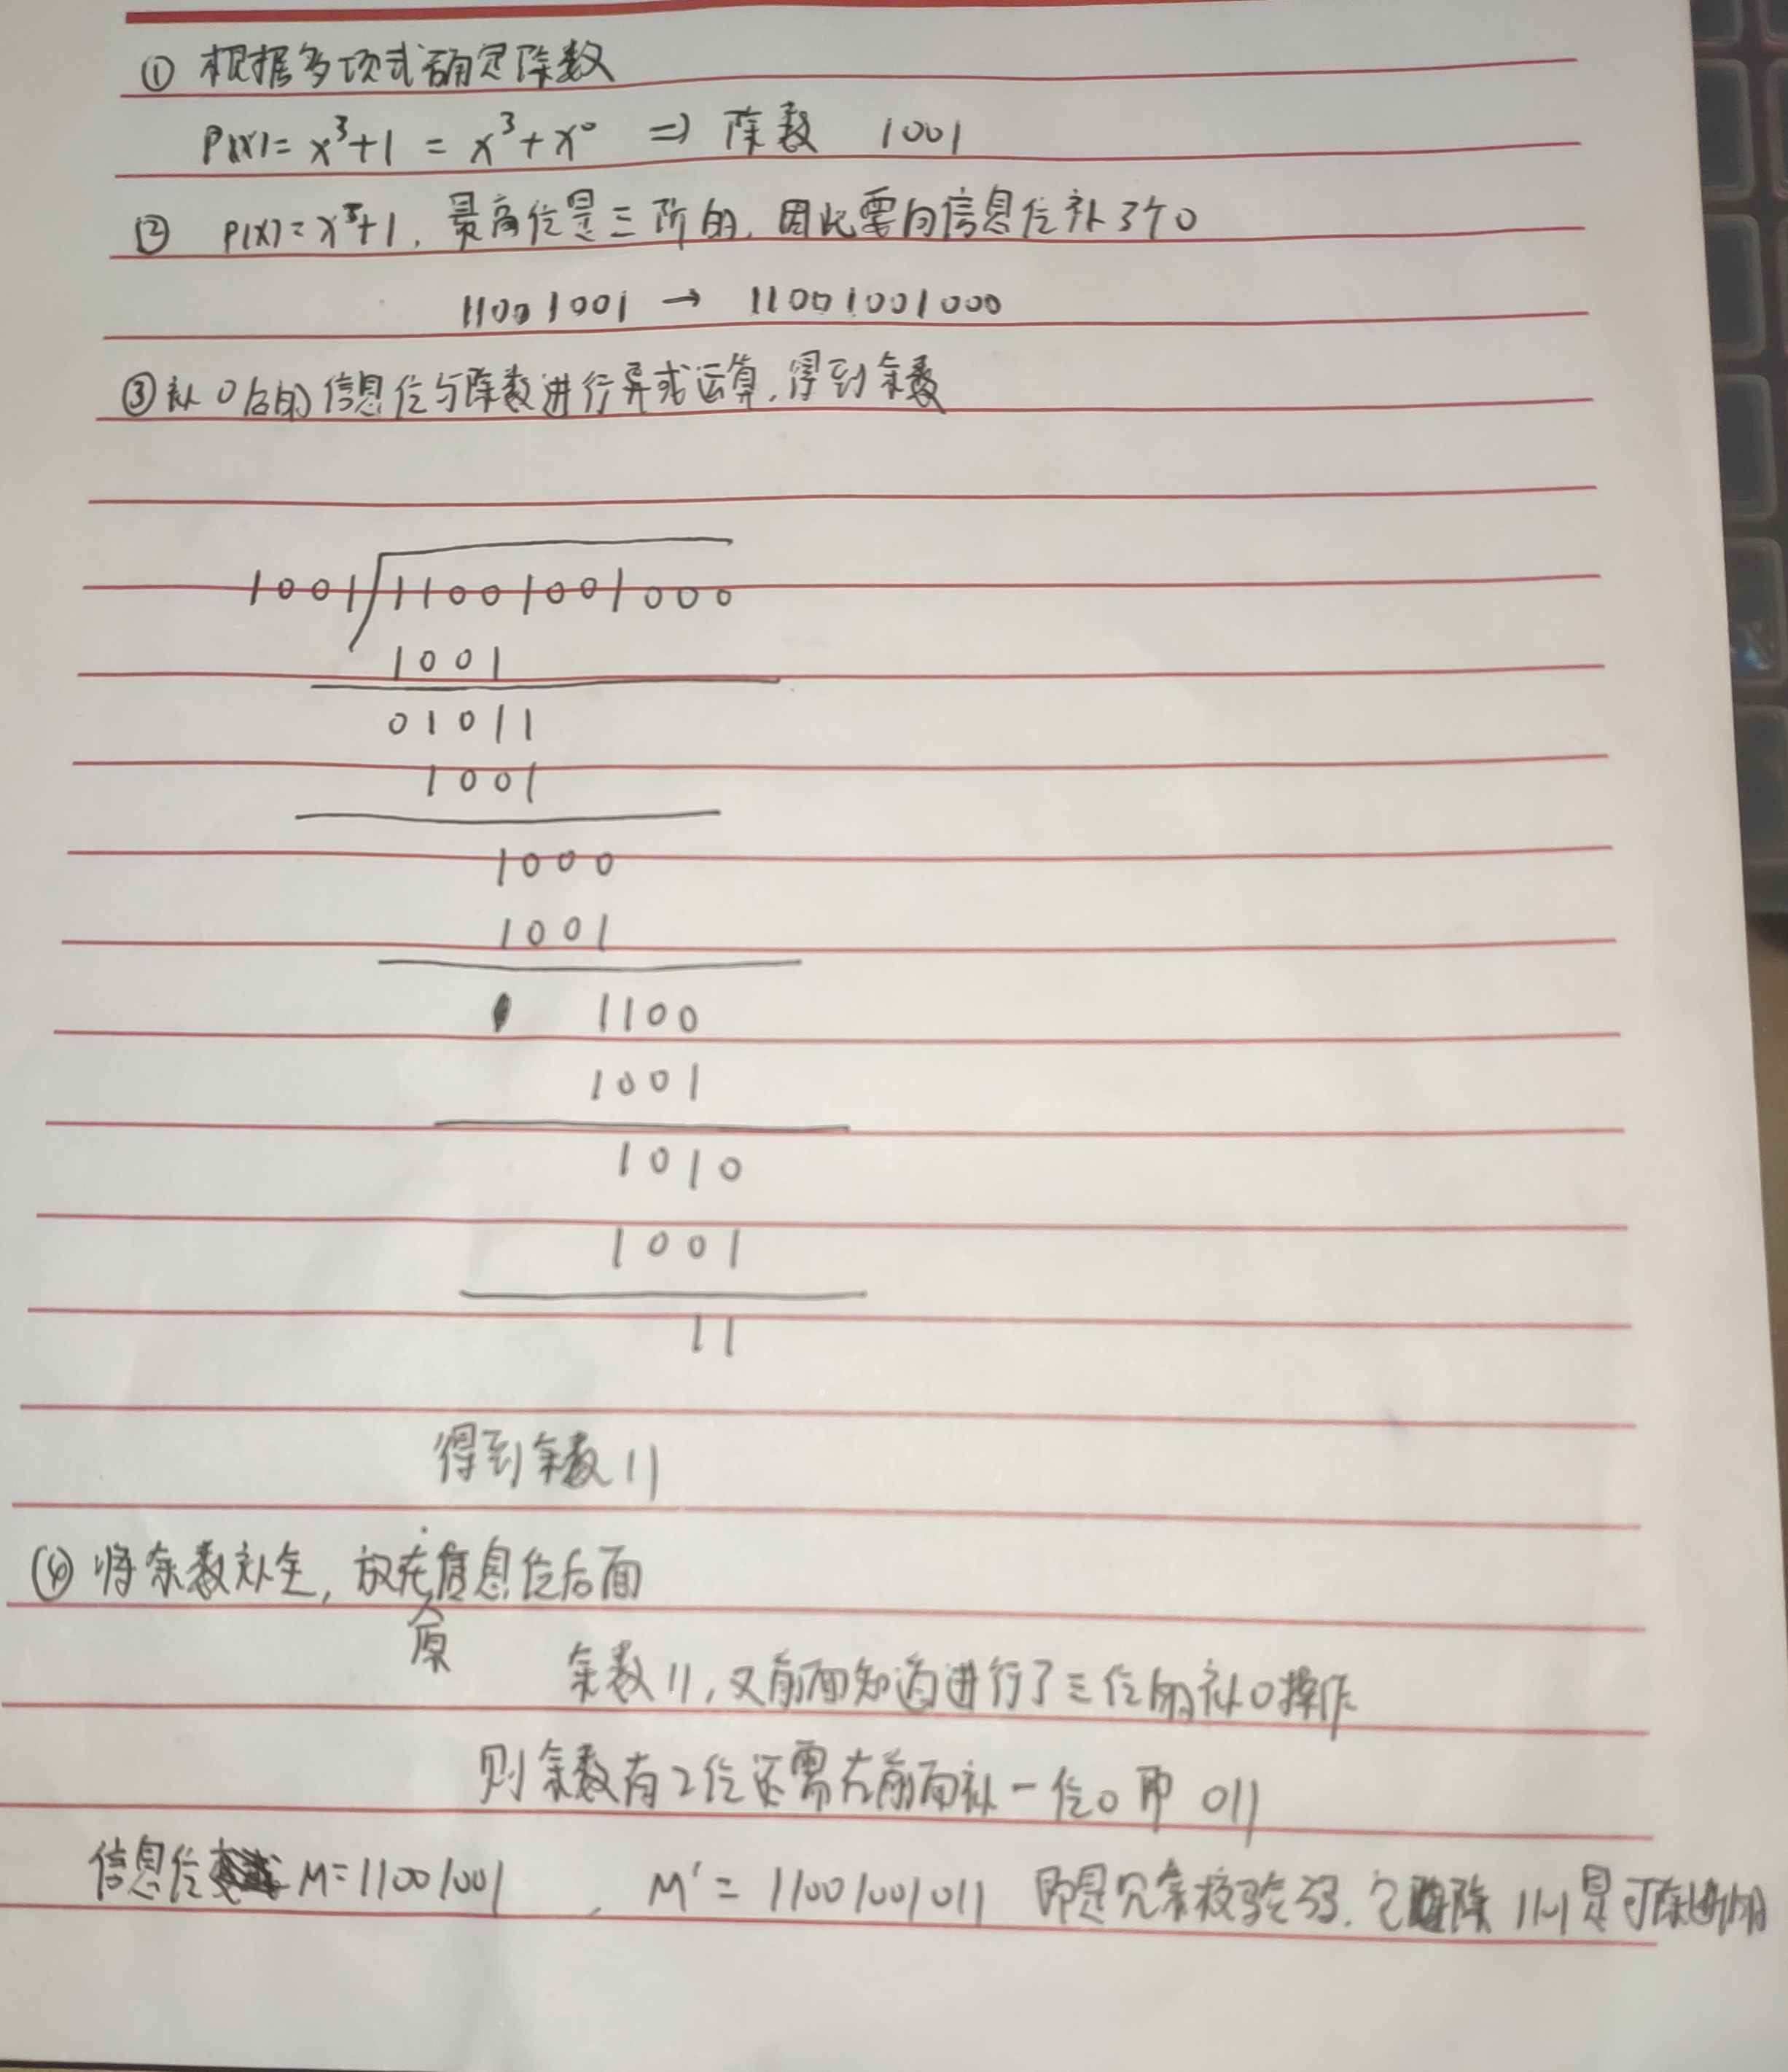 ① 根据多项式确定除数
P(X)= x³+1 = x³+x⁰ => 除数 1001
② P(X)=x³+1, 最高位是三阶的, 因此要向信息位补3个0
11001001 → 11001001000
③ 补0后的信息位与除数进行异或运算, 得到余数
1001 11001001000
1001
01011
1001
1000
1001
1100
1001
1010
1001
11
得到余数11
④ 将余数补全, 放在原信息位后面
余数11, 又前面知道进行了三位的补0操作
则余数有2位还需在前面补一位0即 011
信息位 M=11001001 , M'= 11001001011 即是冗余校验码. 它除 是可除尽的